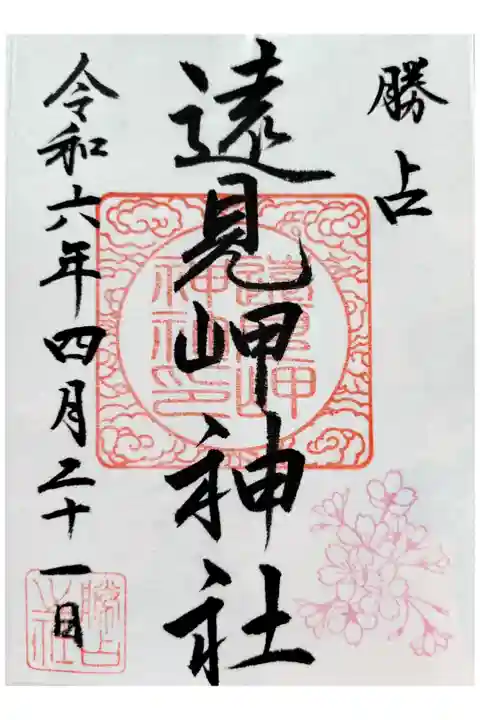 勝占
遠見岬神社
遠見岬
神社印
令和六年四月二十一日
勝占
之社